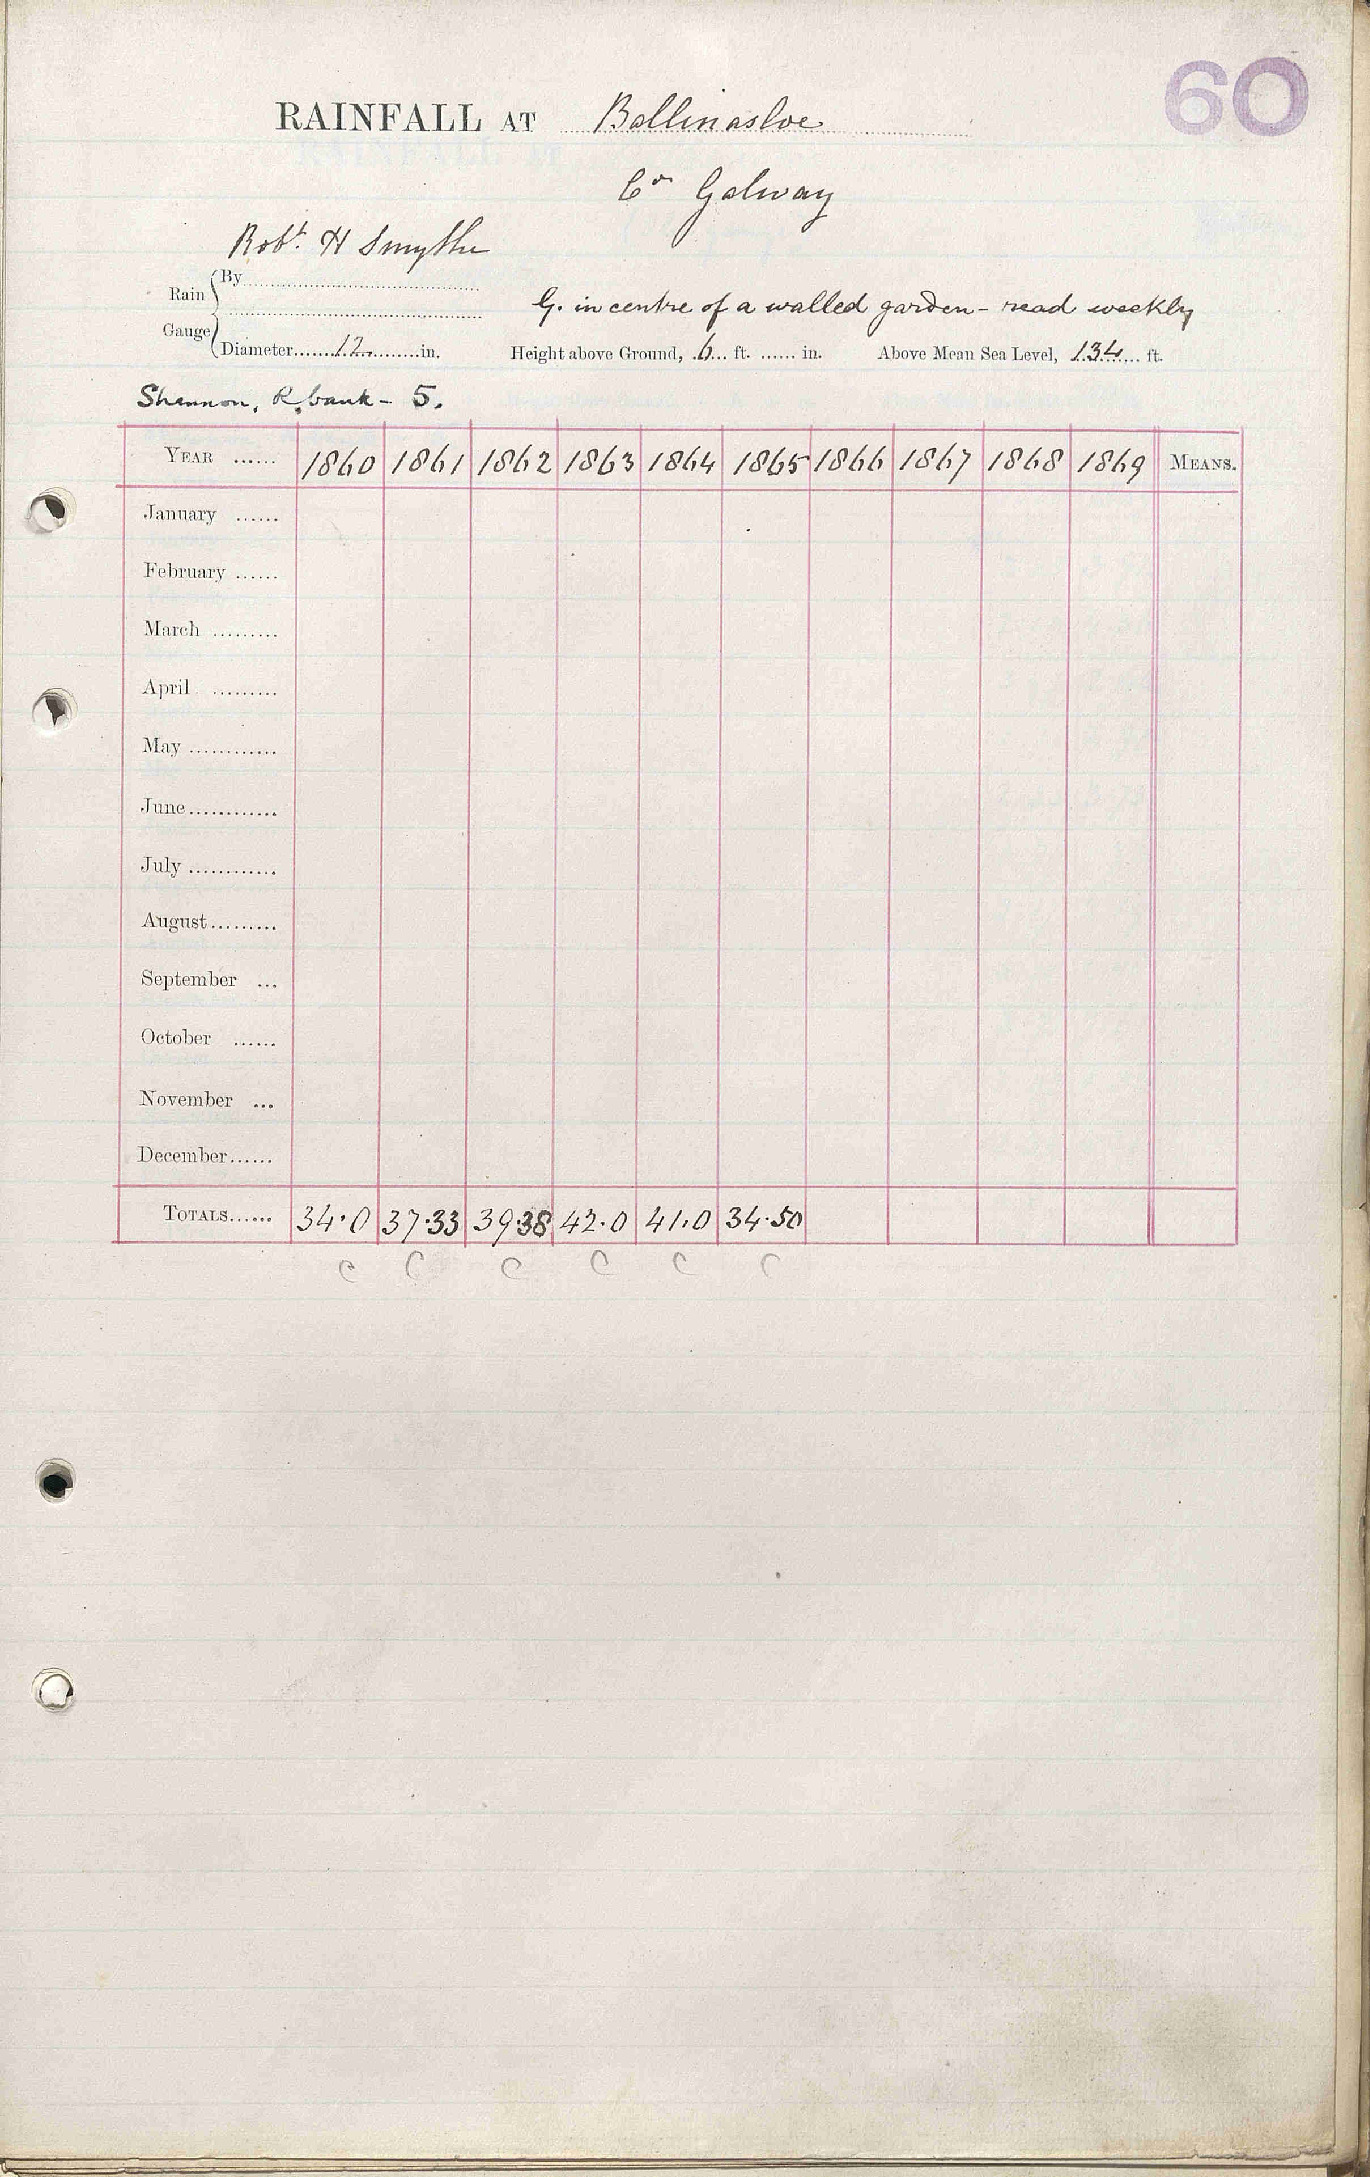 60
RAINFALL AT Ballinasloe
Co Galway
Robt. H Smythe
Rain Gauge { By
G. in centre of a walled garden - read weekly
Diameter.......12.........in. Height above Ground, 6... ft. ...... in. Above Mean Sea Level, 134... ft.
Shannon, R. bank - 5.
YEAR ...... 1860 1861 1862 1863 1864 1865 1866 1867 1868 1869 MEANS.
January ......
February ......
March .........
April .........
May ............
June............
July ............
August.........
September ...
October ......
November ...
December......
TOTALS...... 34·0 37·33 39·38 42·0 41·0 34·50
C C C C C C